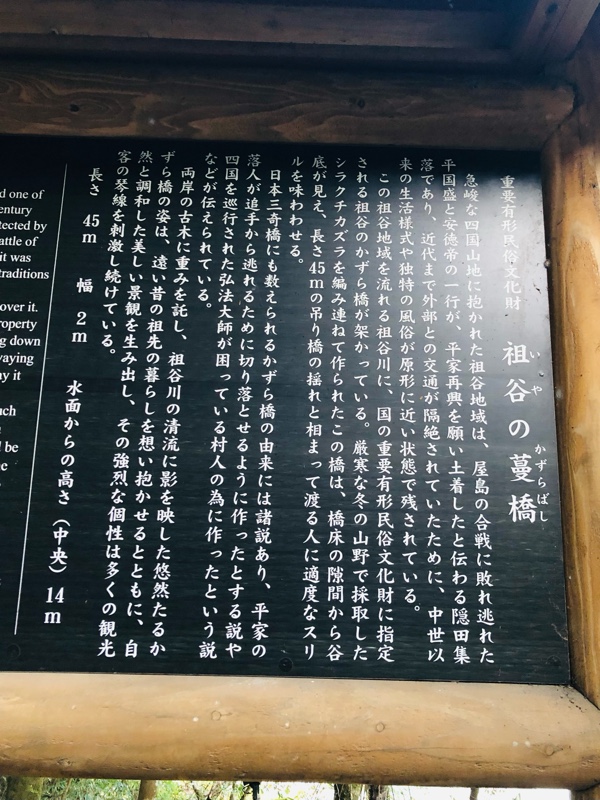 重要有形民俗文化財
祖谷の蔓橋
いや
かずらばし
急峻な四国山地に抱かれた祖谷地域は、屋島の合戦に敗れ逃れた
平国盛と安徳帝の一行が、平家再興を願い土着したと伝わる隠田集
落であり、近代まで外部との交通が隔絶されていたために、中世以
来の生活様式や独特の風俗が原形に近い状態で残されている。
この祖谷地域を流れる祖谷川に、国の重要有形民俗文化財に指定
される祖谷のかずら橋が架かっている。厳寒な冬の山野で採取した
シラクチカズラを編み連ねて作られたこの橋は、橋床の隙間から谷
底が見え、長さ45mの吊り橋の揺れと相まって渡る人に適度なスリ
ルを味わわせる。
日本三奇橋にも数えられるかずら橋の由来には諸説あり、平家の
落人が追手から逃れるために切り落とせるように作ったとする説や
四国を巡行された弘法大師が困っている村人の為に作ったという説
などが伝えられている。
両岸の古木に重みを託し、祖谷川の清流に影を映した悠然たるか
ずら橋の姿は、遠い昔の祖先の暮らしを想い抱かせるとともに、自
然と調和した美しい景観を生み出し、その強烈な個性は多くの観光
客の琴線を刺激し続けている。
長さ 45m 幅 2m 水面からの高さ（中央）14m
d one of
entury
tected by
attle of
it was
traditions
over it.
roperty
ng down
waying
ny it
uch
d be